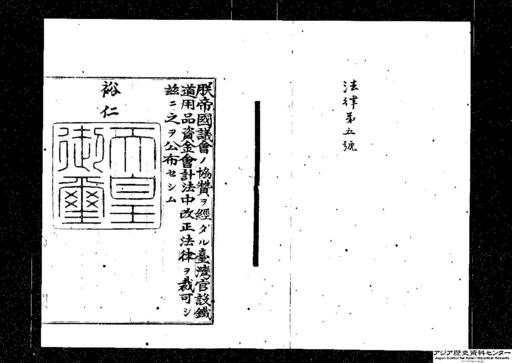 法律第五號
朕帝國議會ノ協贊ヲ經タル臺灣官設鐵
道用品資金會計法中改正法律ヲ裁可シ
茲ニ之ヲ公布セシム
裕仁
天皇
御璽
アジア歴史資料センター
Japan Center for Asian Historical Records